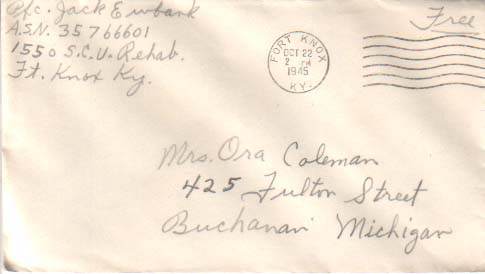 Pfc. Jack Ewbank
A.S.N. 35766601
1550 S.C.U. Rehab.
Ft. Knox Ky.
Free
FORT KNOX
OCT 22
2 PM
1945
KY.
Mrs. Ora Coleman
425 Fulton Street
Buchanan Michigan